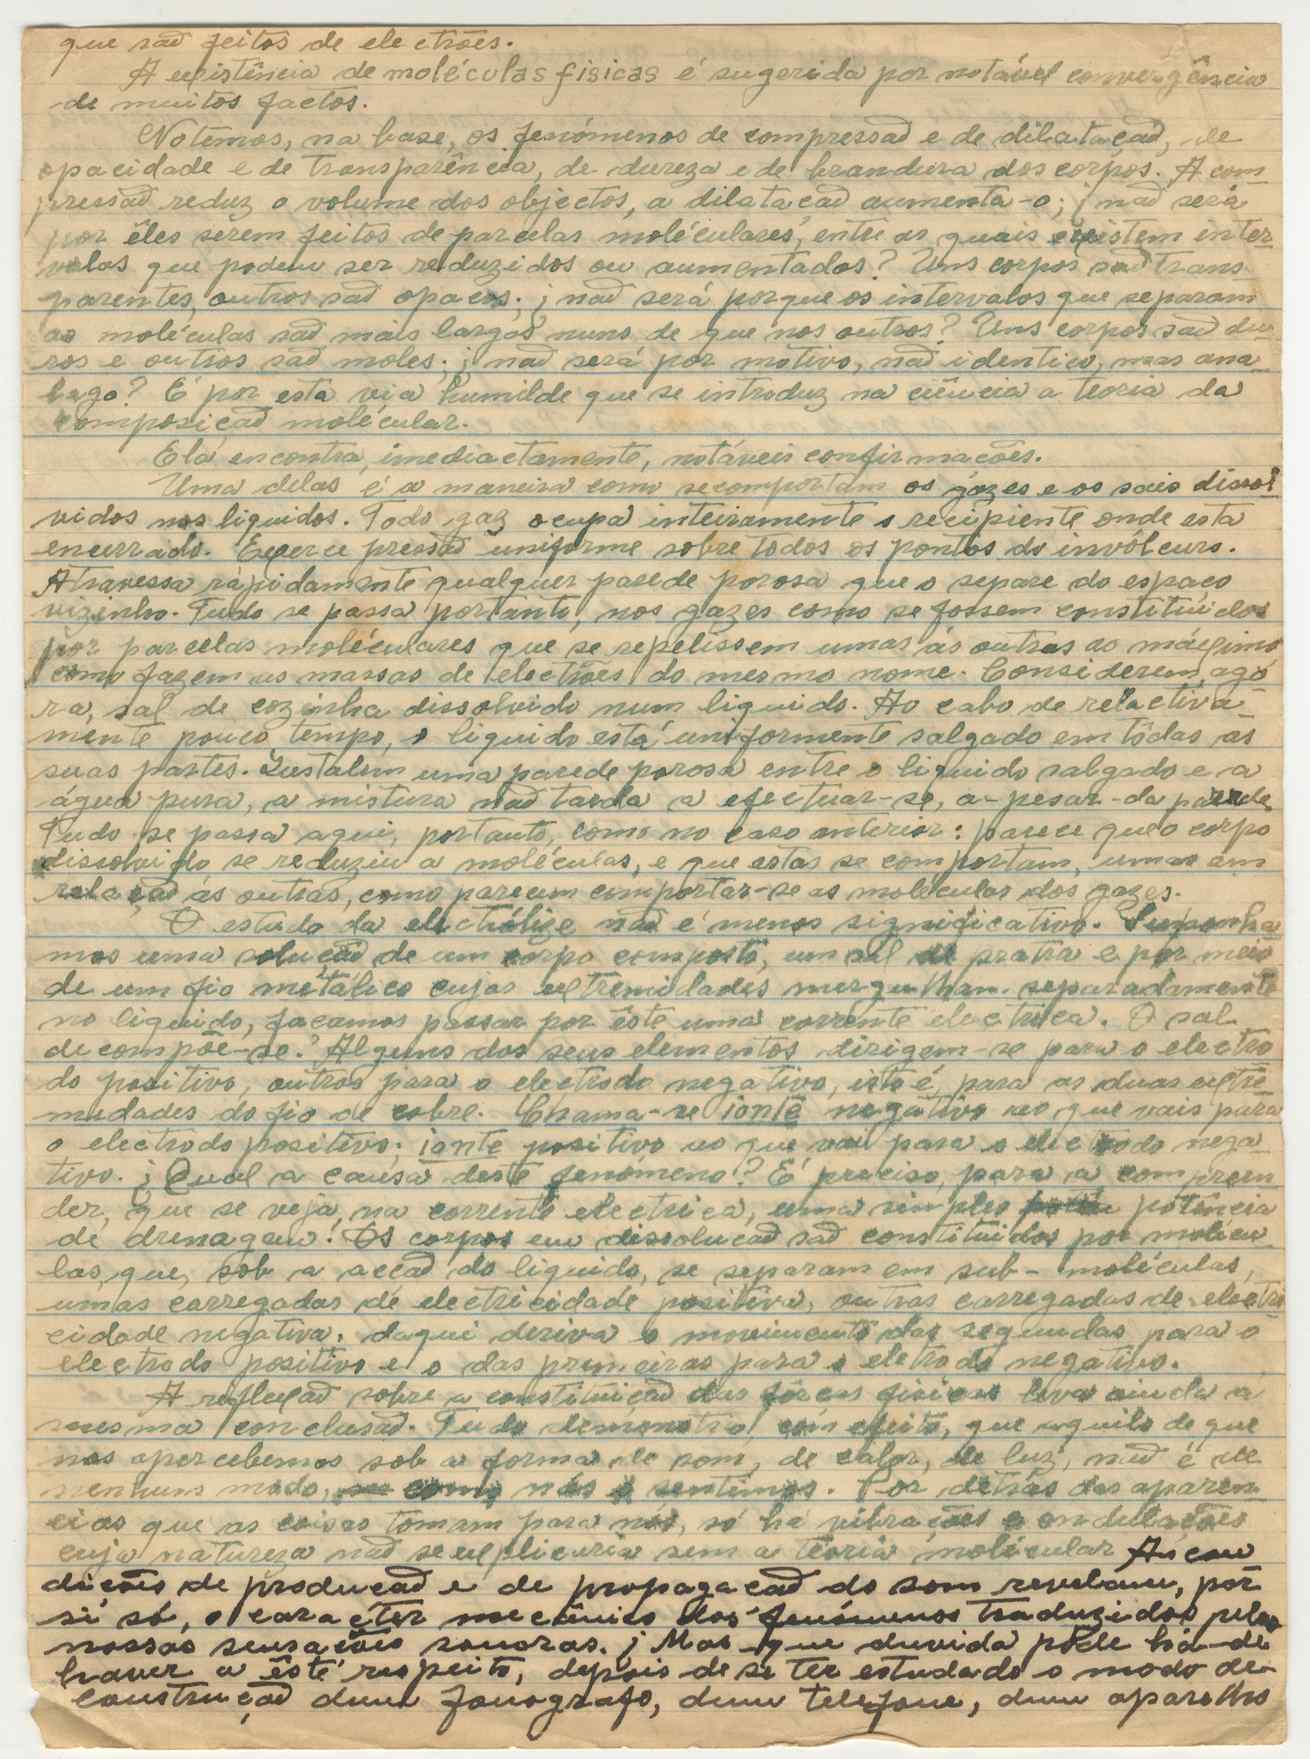 que são feitos de electrões.
A existência de moléculas fisicas é sugerida por notável convergência
de muitos factos.
Notemos, na base, os fenómenos de compressão e de dilatação, de
opacidade e de transparência, de dureza e de brandura dos corpos. A com
pressão reduz o volume dos objectos, a dilatação aumenta-o; ¡não será
por êles serem feitos de parcelas moléculares, entre as quais existem inter
valos que podem ser reduzidos ou aumentados? Uns corpos são trans
parentes, outros são opacos; ¡não será porque os intervalos que separam
as moléculas são mais largos nuns de que nos outros? Uns corpos são du-
ros e outros são moles; ¡não será por motivo, não identico, mas aná
logo? É por esta via humilde que se introduz na ciência a teoria da
composição molécular.
Ela encontra, imediactamente, notáveis confirmações.
Uma delas é a maneira como se comportam os gázes e os sais dissol
vidos nos liquidos. Todo gaz ocupa inteiramente o recipiente onde está
encerrado. Exerce pressão uniforme sobre todos os pontos do invólcuro.
Atravessa rápidamente qualquer parede porosa que o separe do espaço
vizinho. Tudo se passa portanto, nos gazes como se fossem constituidos
por parcelas moléculares que se repelissem umas ás outras ao máximo
como fazem as massas de electrões do mesmo nome. Considerem, ago
ra, sal de cozinha dissolvido num liquido. Ao cabo de relactiva-
mente pouco tempo, o liquido está uniformente salgado em tôdas as
suas partes. Instalem uma parede porosa entre o liquido salgado e a
água pura, a mistura não tarda a efectuar-se, a-pesar-da parede
Tudo se passa aqui, portanto, como no caso anterior: parece que o corpo
dissolvido se reduziu a moléculas, e que estas se comportam, umas em
relação ás outras, como parecem comportar-se as moléculas dos gazes.
O estudo da electrólize não é menos significativo. Suponha
mos uma solução de um corpo composto, um sal de pratra e por meio
de um fio metálico cujas extremidades mergulham separadamente
no liquido, façamos passar por êste uma corrente electrica. O sal
decompõe-se. Alguns dos seus elementos dirigem-se para o electro
do positivo, outros para o electrodo negativo, isto é, para as duas extre
midades do fio de cobre. Chama-se ionte negativo ao que vais para
o electrodo positivo; ionte positivo ao que vai para o electrodo nega
tivo. ¡Qual a causa deste fenomeno? É preciso, para a compreen
der, que se veja, na corrente electrica, uma simples potência
de drenagem. Os corpos em dissolução são constituidos por molécu
las, que, sob a acção do liquido, se separam em sub-moléculas,
umas carregadas de electricidade positiva, outras carregadas de electri
cidade negativa. daqui deriva o movimento das segundas para o
electrodo positivo e o das primeiras para o eletrodo negativo.
A reflexão sobre a constituição das fôrças fisicas leva ainda á
mesma conclusão. Tudo demonstra, com efeito, que aquilo de que
nos apercebemos sob a forma de som, de calor, de luz, não é de
nenhum modo, como nós o sentimos. Por detrás das aparen
cias que as coisas tomam para nós, só há vibrações e ondulações
cuja natureza não se explicaria sem a teoria molécular As con
dições de produção e de propagação do som revelam, por
si só, o carácter mecânico dos fenómenos traduzidos pelas
nossas sensações sonoras. ¡Mas que duvida póde há-de
haver a êste respeito, depois de se ter estudado o modo de
construção dum fonografo, dum telefone, dum aparelho